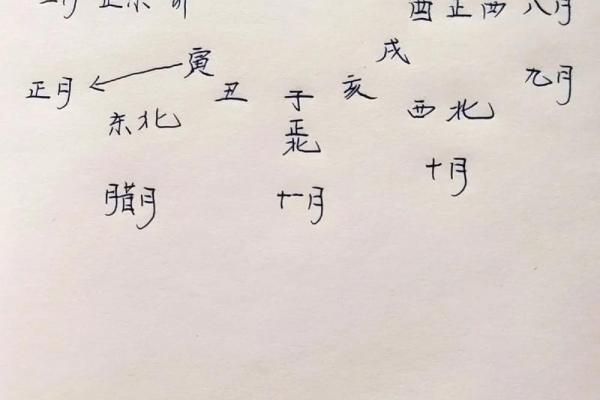 二月 正东 卯
酉 正西 八月
戌
寅
正月
丑
子
亥
九月
东北
正北
西北
十月
腊月
十一月